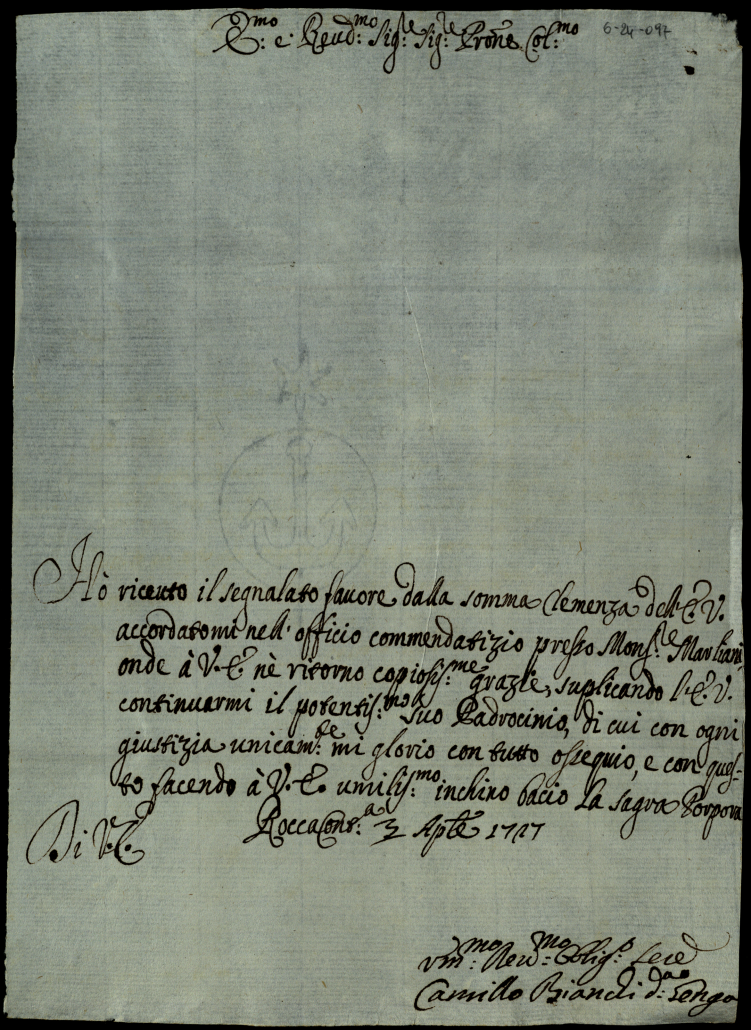 E.mo e Reud.mo Sig.re Sig.re Prōne Col.mo
6-24-097
Hò riceuto il segnalato fauore dalla somma Clemenza dell'E. V.
accordatomi nell' officio commendatizio presso Mons.re Marliani
onde à V. E. nè ritorno copiosis.me grazie, suplicando l'E. V.
continuarmi il potentis.mo suo Padrocinio, di cui con ogni
giustizia unicam.te mi glorio con tutto ossequio, e con ques-
to facendo à V. E. umilis.mo inchino bacio la sagra Porpora
Di V. E.
RoccaCont.a 3 Aplē 1727
Vm.mo Deu.mo Oblig.o Ser.e
Camillo Bianchi